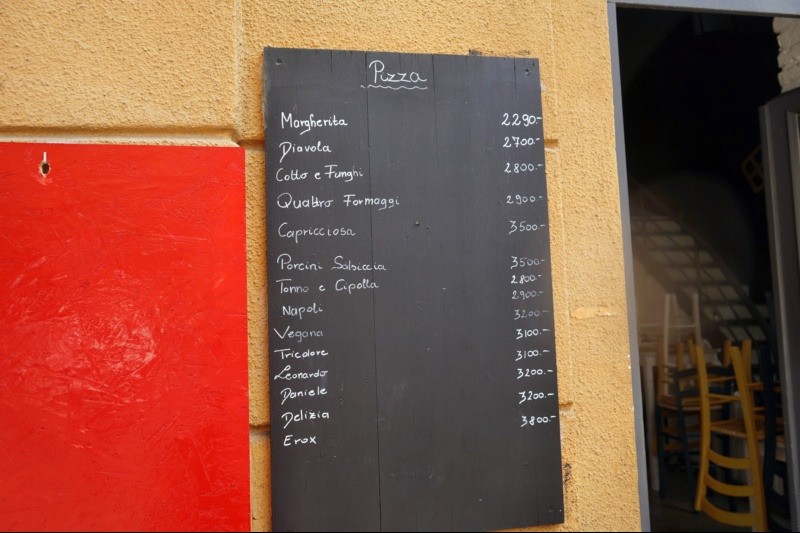 Pizza
Margherita 2290.-
Diavola 2700.-
Cotto e Funghi 2800.-
Quattro Formaggi 2900.-
Capricciosa 3500.-
Porcini Salsiccia 3500.-
Tonno e Cipolla 2800.-
Napoli 2900.-
Vegana 3200.-
Tricolore 3100.-
Leonardo 3100.-
Daniele 3200.-
Delizia 3200.-
Erox 3800.-